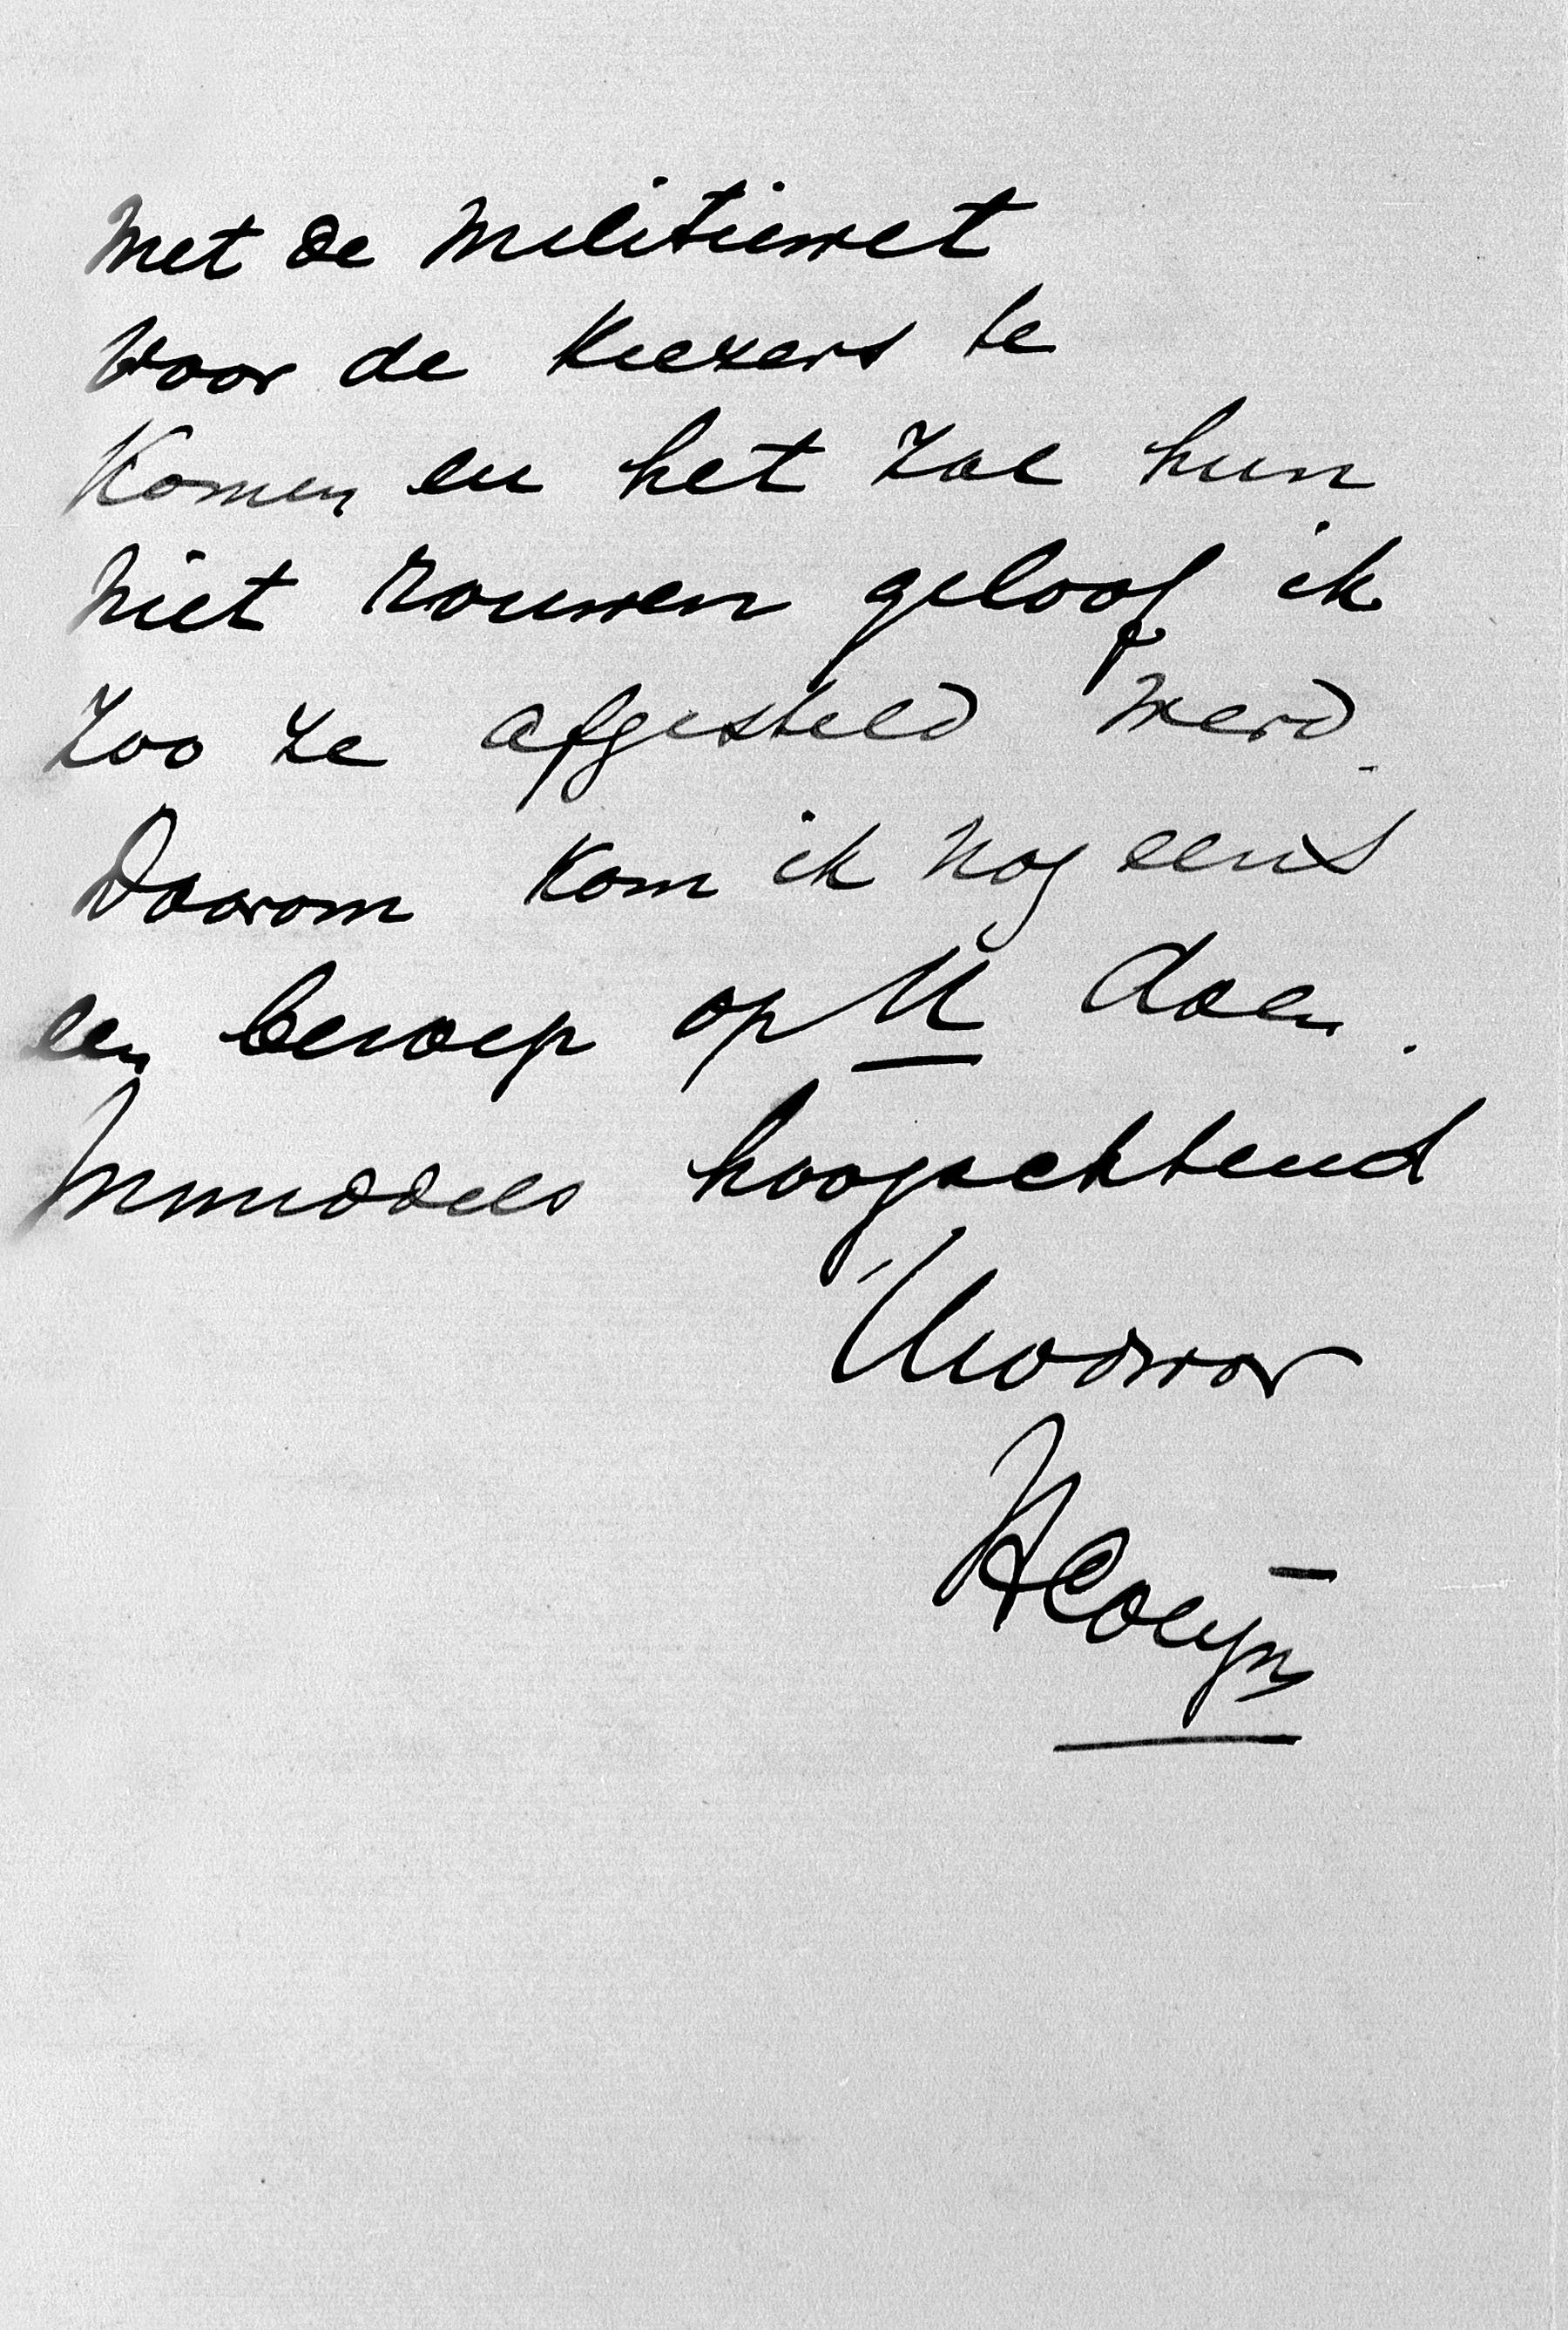 met de militiewet
voor de kiezers te
komen en het zal hun
niet rouwen geloof ik
zoo ze afgesteld werd.
Daarom kom ik nog eens
een beroep op U doen.
Inmiddels hoogachtend
Uwdwr
HColijn